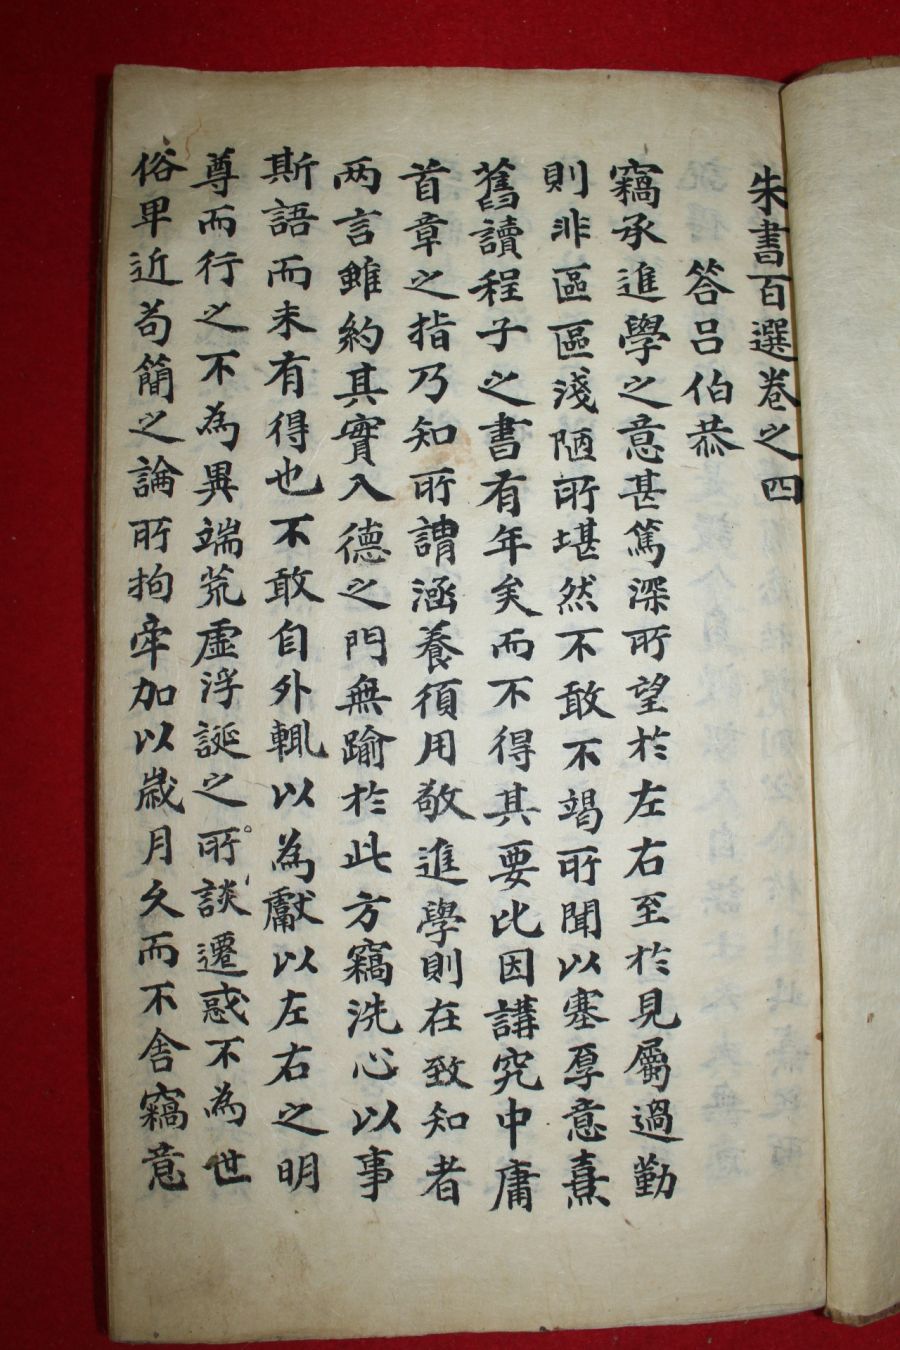 朱書百選卷之四
答呂伯恭
竊承進學之意甚篤深所望於左右至於見屬過勤
則非區區淺陋所堪然不敢不竭所聞以塞厚意熹
舊讀程子之書有年矣而不得其要比因講究中庸
首章之指乃知所謂涵養須用敬進學則在致知者
两言雖約其實入德之門無踰於此方竊洗心以事
斯語而未有得也不敢自外輒以為獻以左右之明
尊而行之不為異端荒虛浮誕之所談遷惑不為世
俗卑近苟簡之論所拘牽加以歲月久而不舍竊意